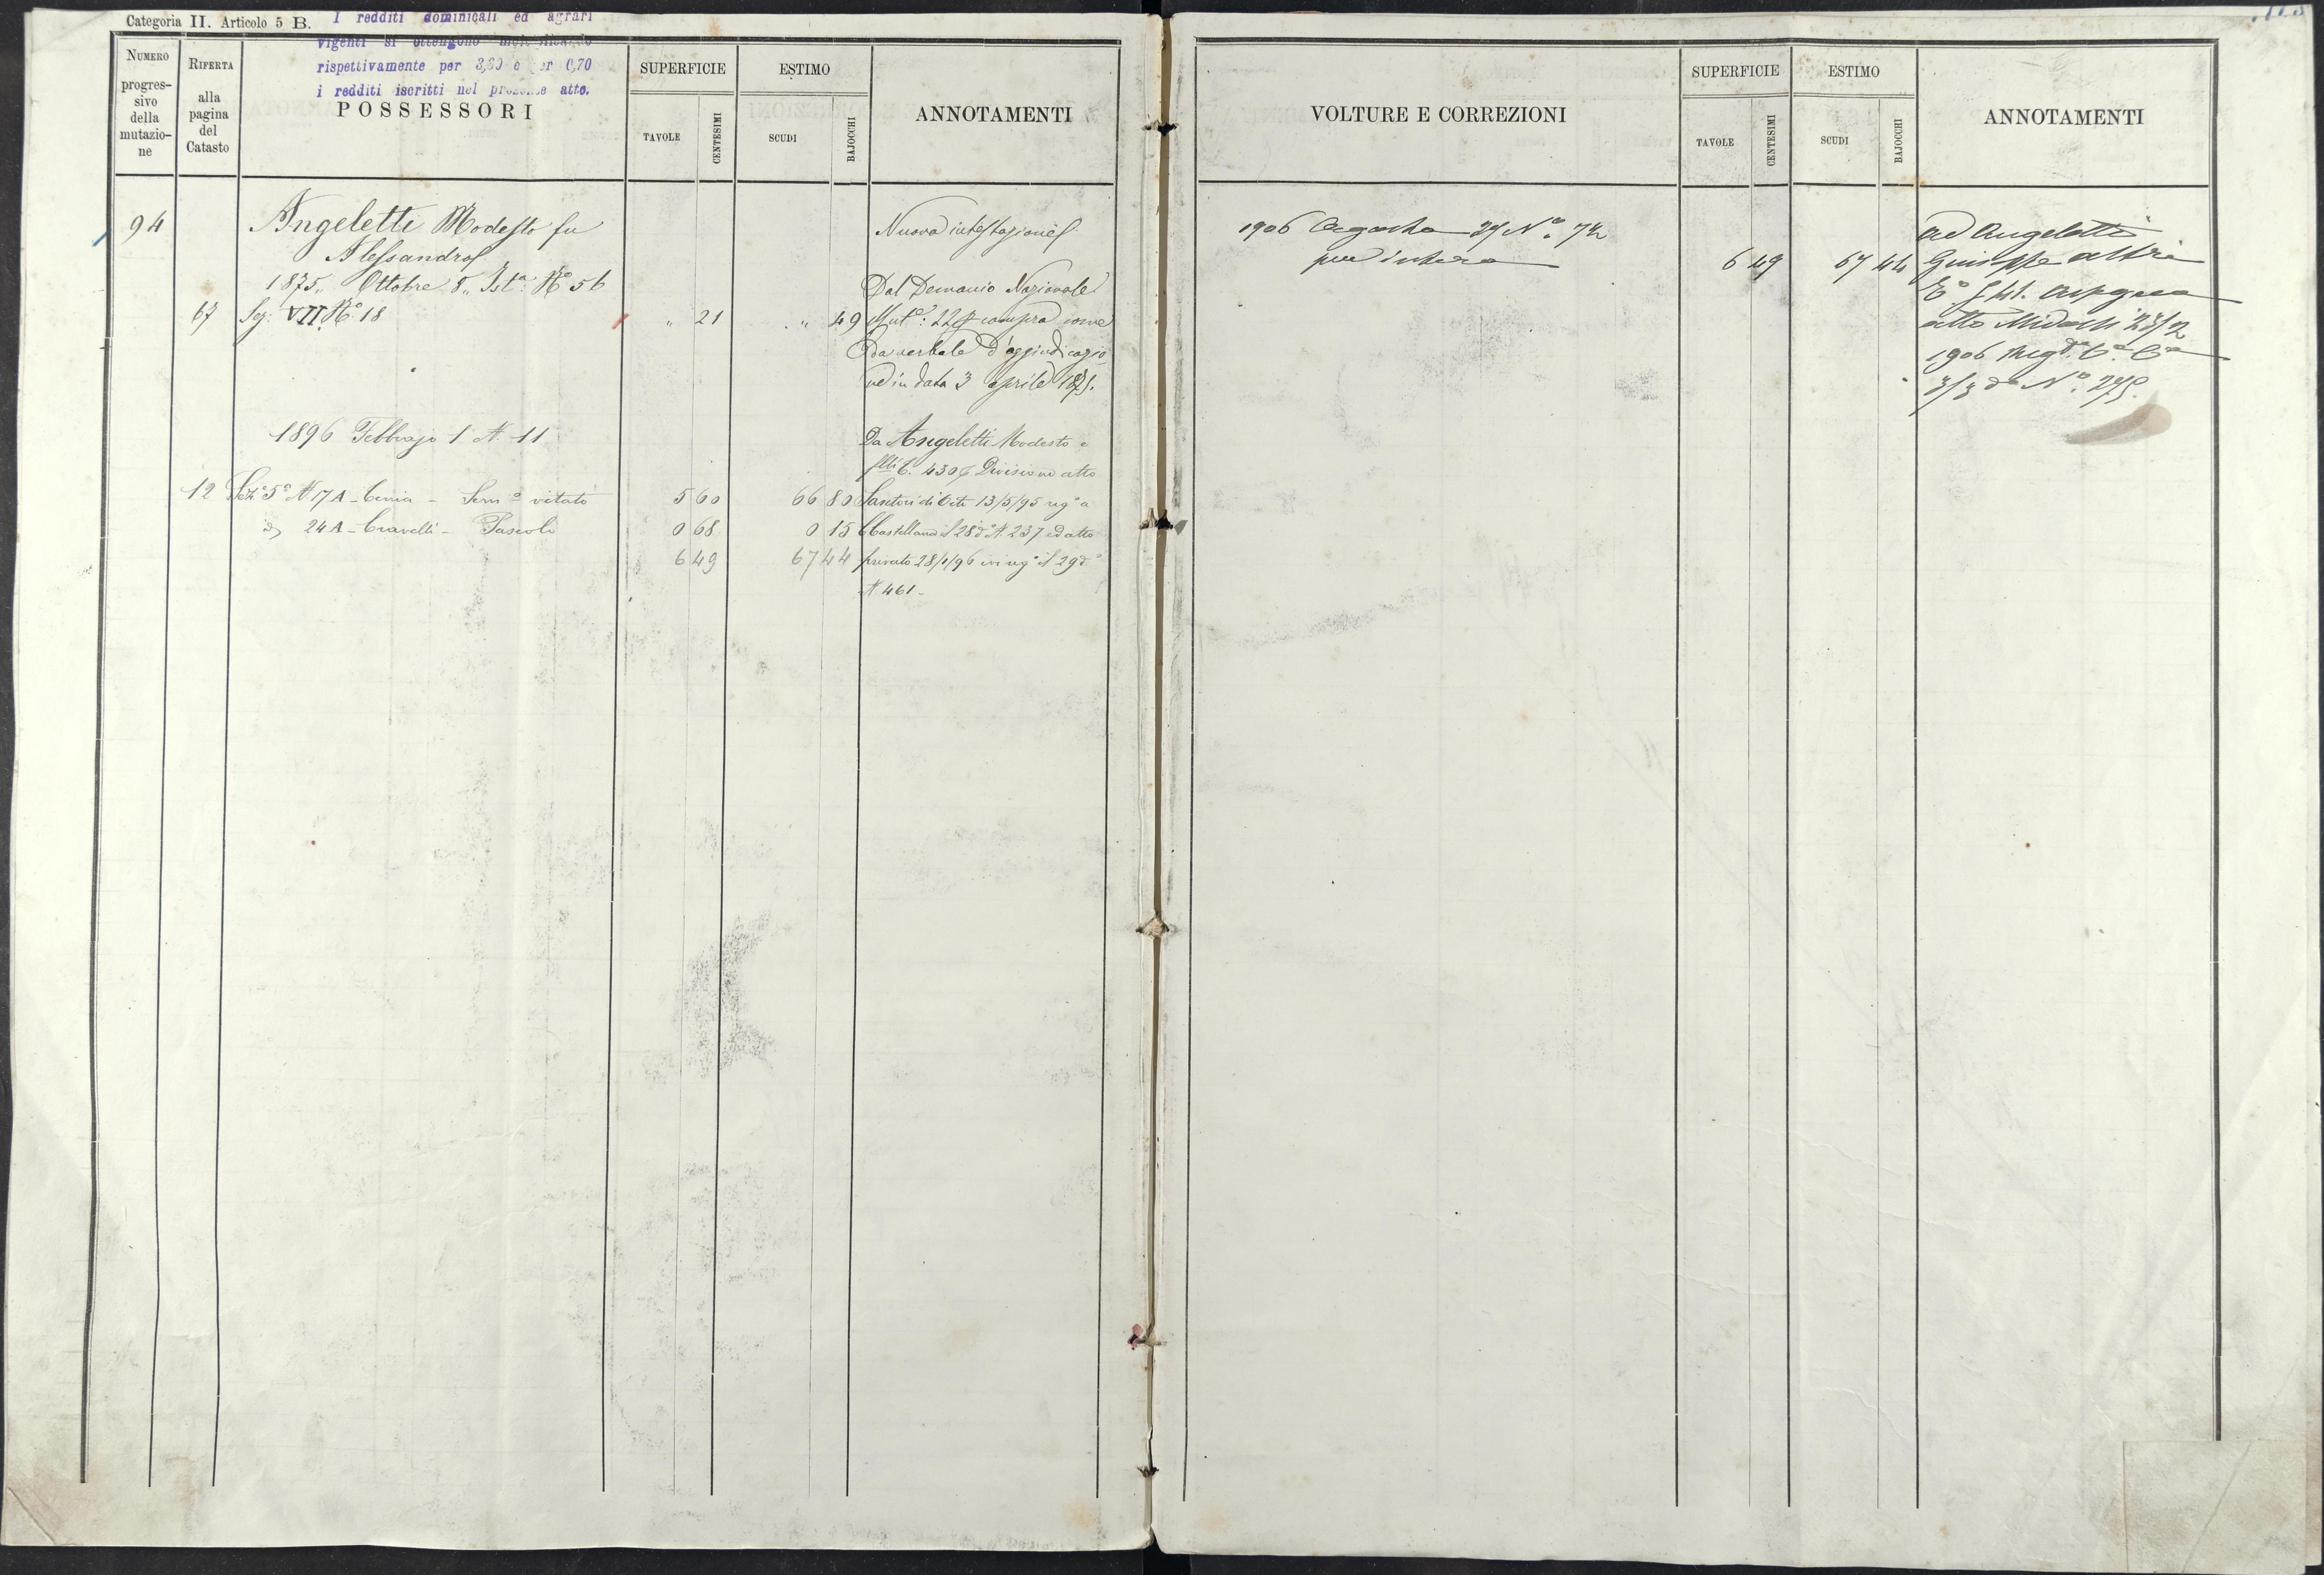 Categoria II. Articolo 5 B.
I redditi dominicali ed agrari
vigenti si ottengono
rispettivamente per 3,60 e per 0,70
i redditi iscritti nel presente atto.
NUMERO progres-
sivo
della
mutazio-
ne
RIFERTA
alla
pagina
del
Catasto
POSSESSORI
SUPERFICIE
TAVOLE
CENTESIMI
ESTIMO
SCUDI
BAJOCCHI
ANNOTAMENTI
94 Angeletti Modesto fu Nuova intestazione
Alessandro
1875 Ottobre 8 Ist.a No 56 Dal Demanio Nazionale
67 Sez. VII No 18 " 21 " 49 compra come
da verbale d'aggiudicazio
ne in data 3 aprile 1875.
1896 Febbrajo 1 N. 11 Da Angeletti Modesto e
flli C. 430 Divisione atto
12 Sez.e 5a N 17A - - Sem.o vitato 5 60 66 80 13/5/95 reg.o a
24A - Cravelli - Pascolo 0 68 0 15 Castellana il 28 do N. 237 ed atto
6 49 67 44 privato 28/1/96 ivi reg.o il 29 do
N 461 -
VOLTURE E CORREZIONI
SUPERFICIE
TAVOLE
CENTESIMI
ESTIMO
SCUDI
BAJOCCHI
ANNOTAMENTI
1906 Agosto 29 No. 72 ad Angeletti
per intero 6 49 67 44 Giuseppe altri
atto
1906 Reg.to
No. 275.